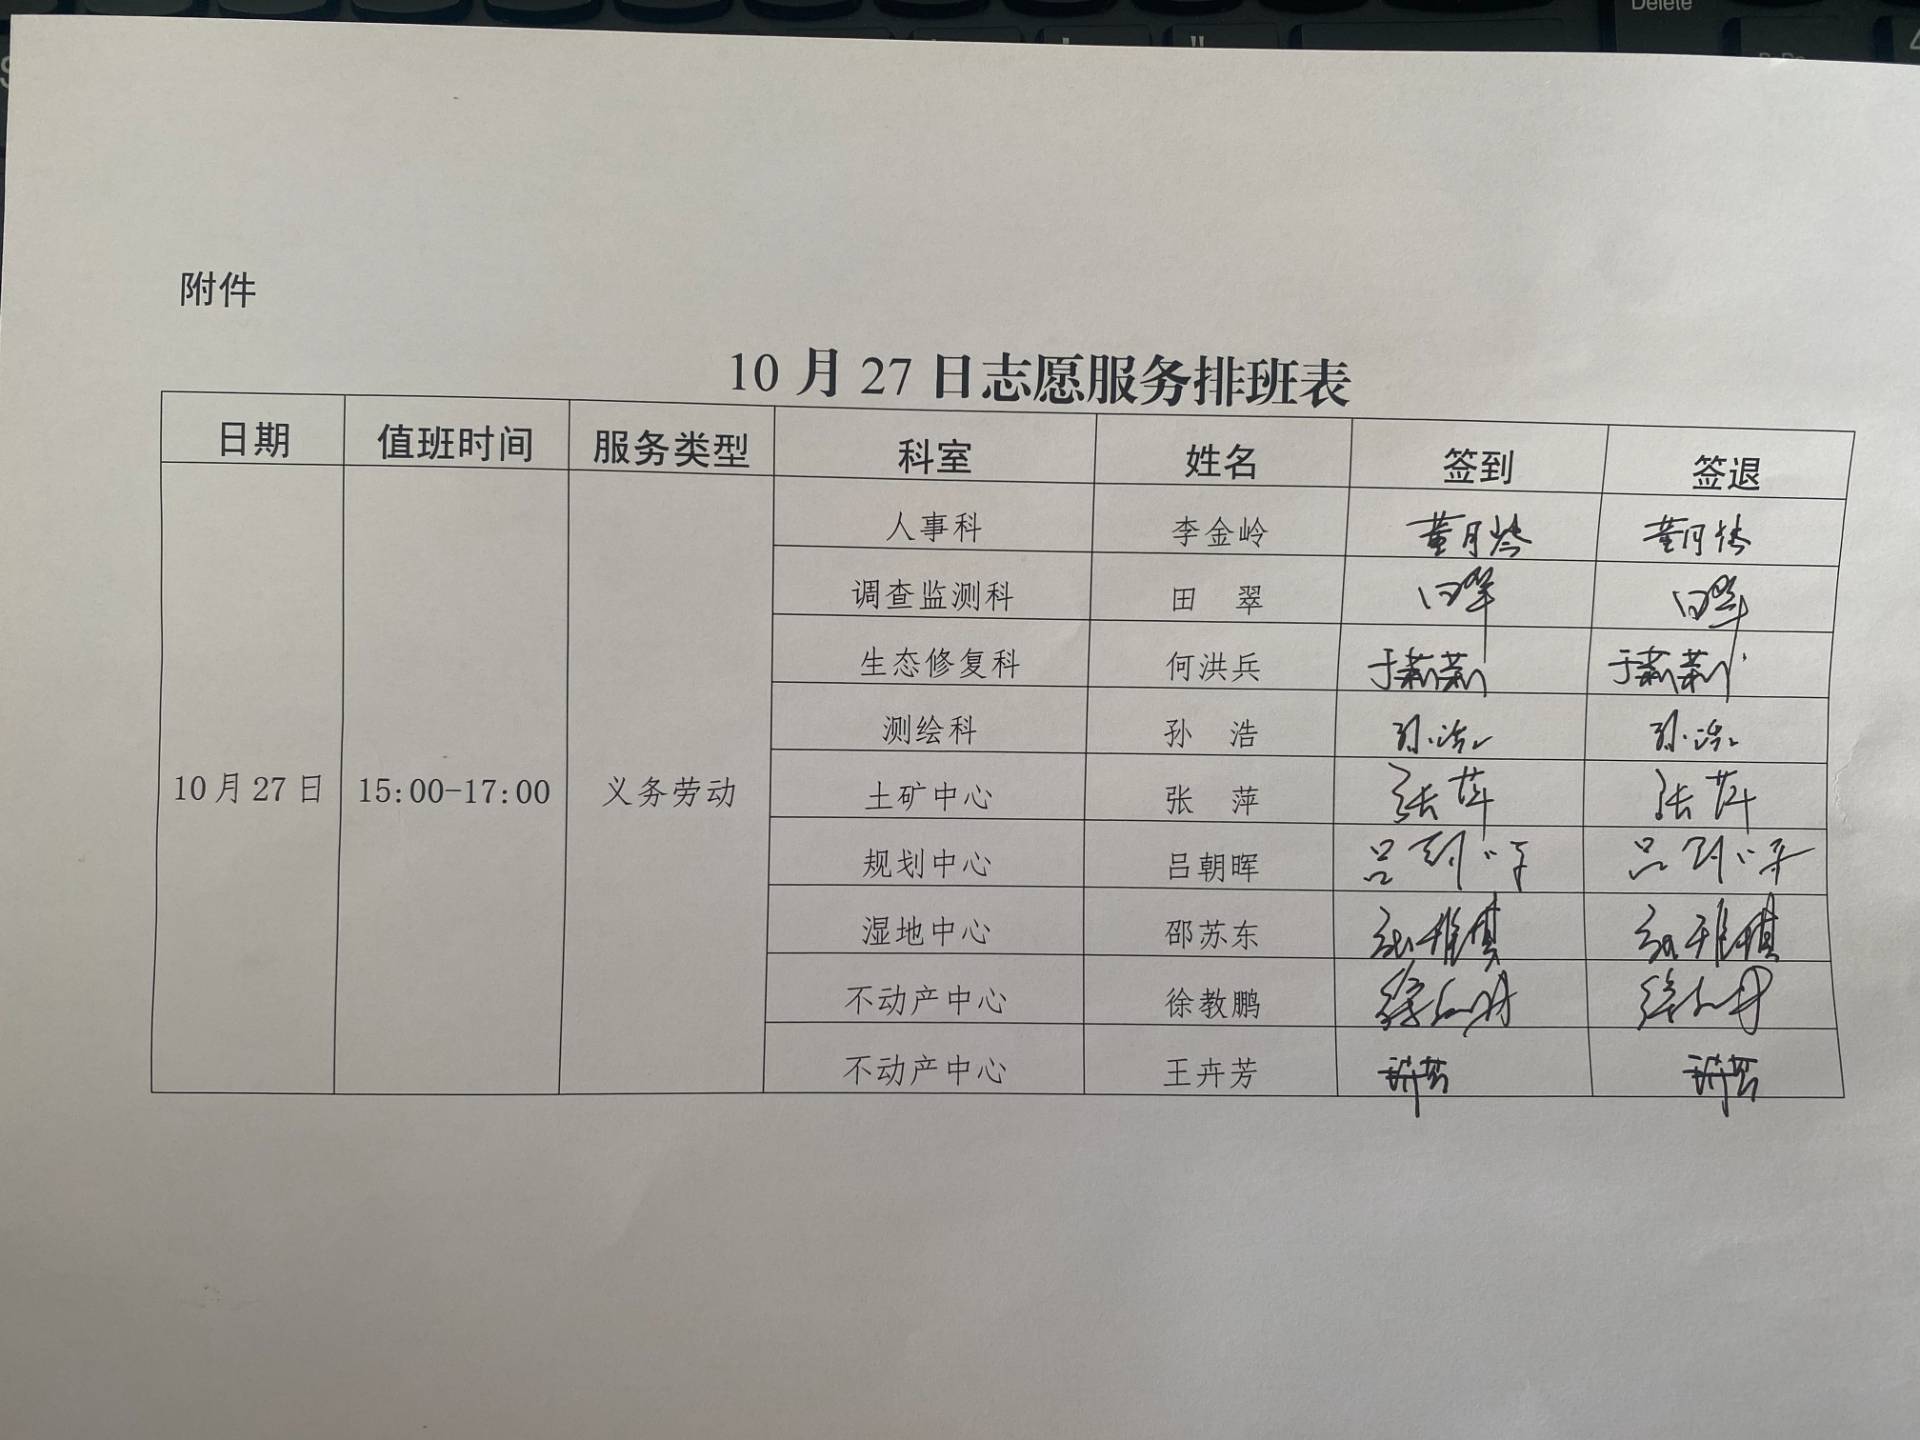 Delete
附件
10 月 27 日志愿服务排班表
日期 值班时间 服务类型 科室 姓名 签到 签退
人事科 李金岭 董月 董月
调查监测科 田 翠 田翠 田翠
生态修复科 何洪兵 于莉莉 于莉莉
测绘科 孙 浩 孙浩 孙浩
10月27日 15:00-17:00 义务劳动 土矿中心 张 萍 张萍 张萍
规划中心 吕朝晖 吕朝晖 吕朝晖
湿地中心 邵苏东 张雅琪 张雅琪
不动产中心 徐教鹏 徐教鹏 徐教鹏
不动产中心 王卉芳 王卉芳 王卉芳